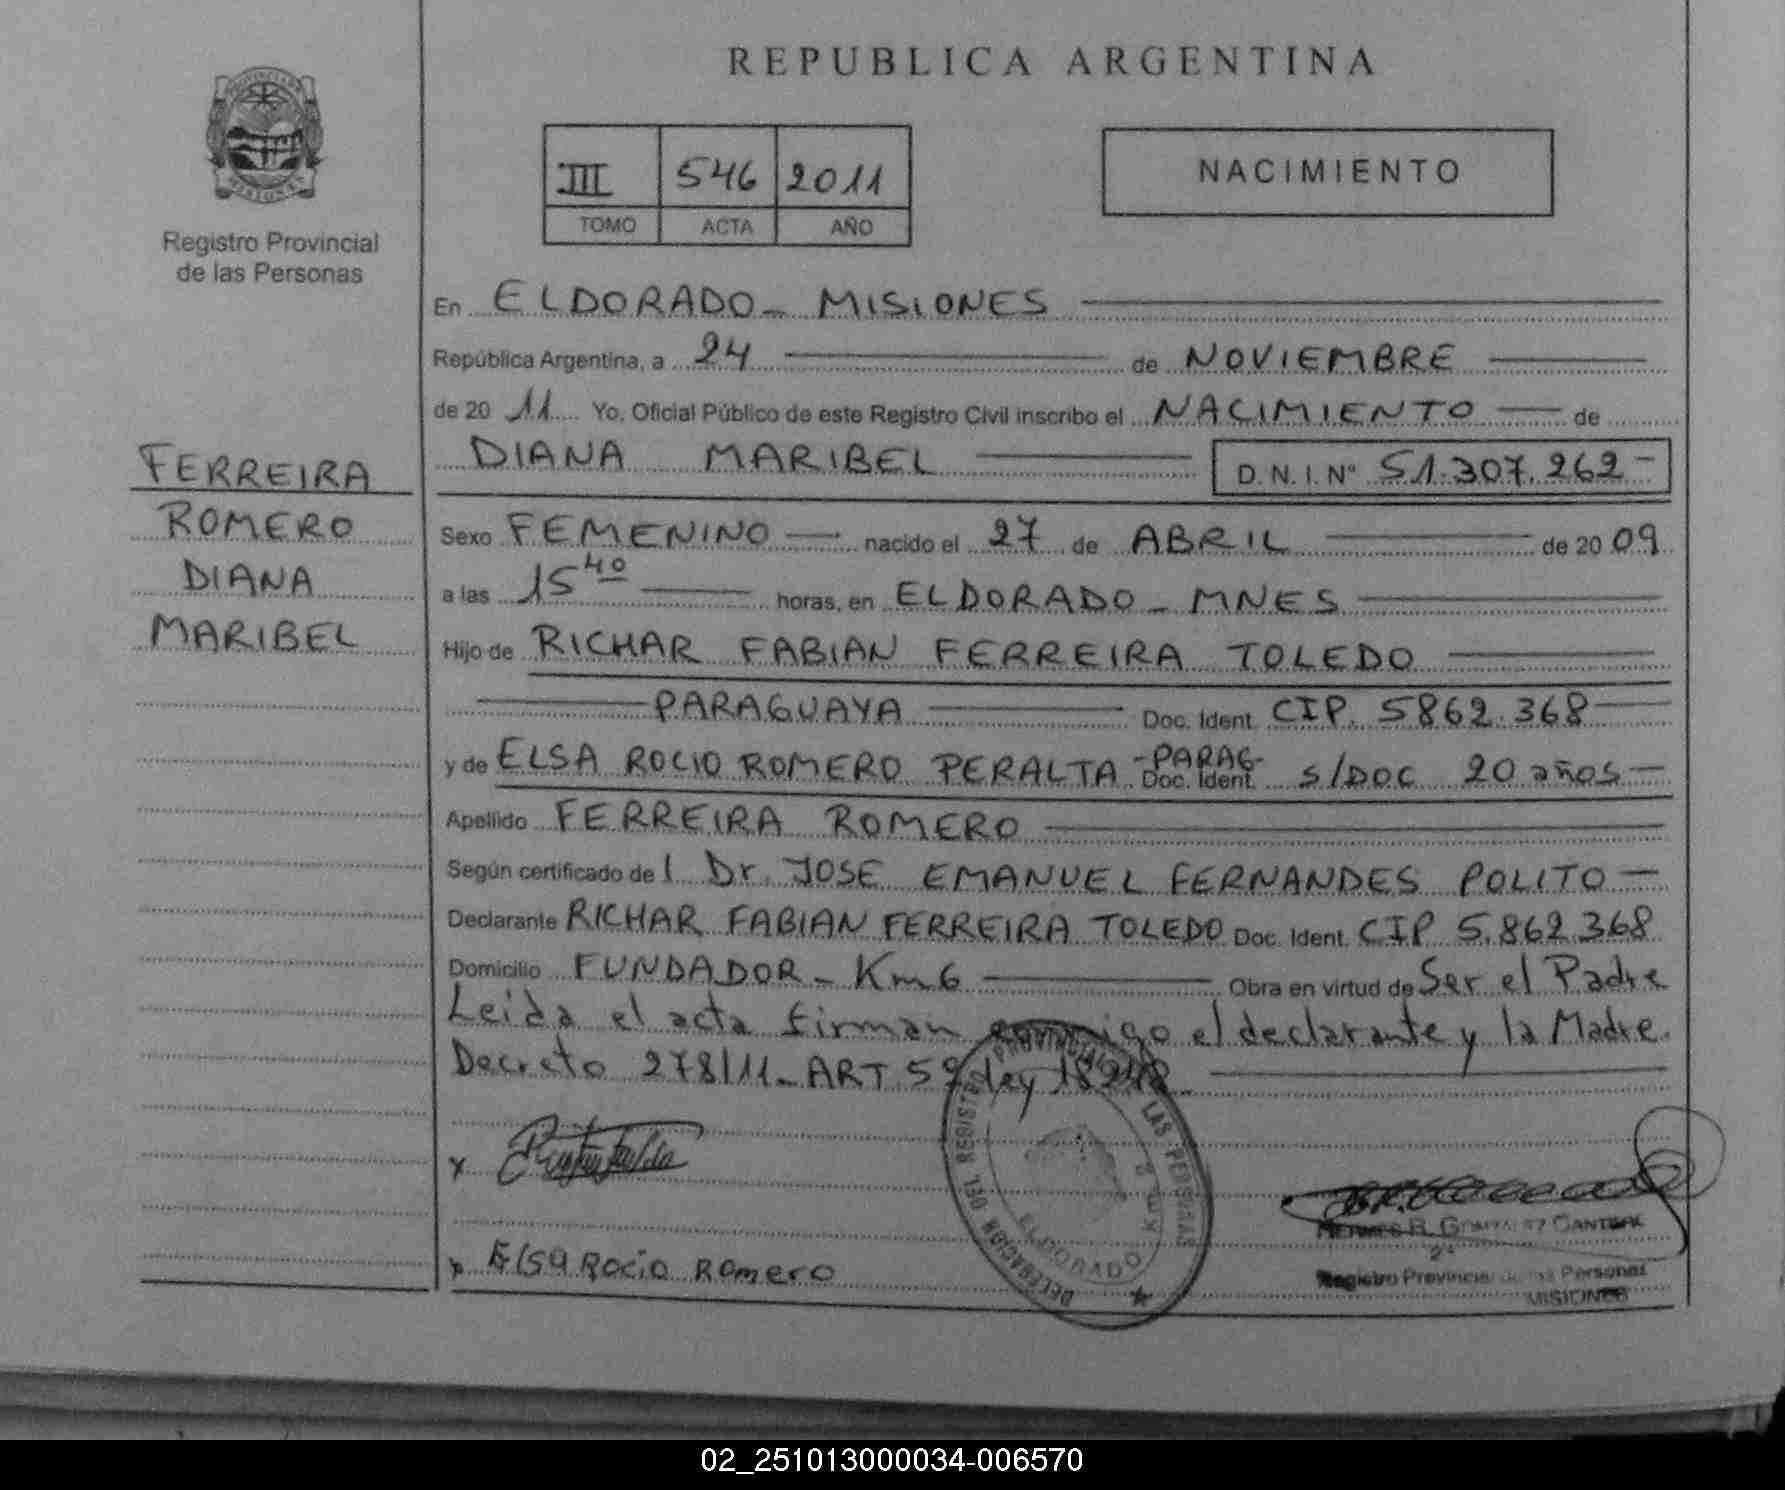 REPUBLICA ARGENTINA
III 546 2011
TOMO ACTA AÑO
NACIMIENTO
PROVINCIA DE MISIONES
Registro Provincial
de las Personas
FERREIRA
ROMERO
DIANA
MARIBEL
En ELDORADO - MISIONES
República Argentina, a 24 de NOVIEMBRE
de 20 11 Yo, Oficial Público de este Registro Civil inscribo el NACIMIENTO de
DIANA MARIBEL D.N.I. N° 51.307.262 -
Sexo FEMENINO nacido el 27 de ABRIL de 20 09
a las 15 40 horas, en ELDORADO - MNES
Hijo de RICHAR FABIAN FERREIRA TOLEDO
PARAGUAYA Doc. Ident. CIP. 5862.368
y de ELSA ROCIO ROMERO PERALTA - PARAG - Doc. Ident. S/DOC 20 años
Apellido FERREIRA ROMERO
Según certificado de l Dr. JOSE EMANUEL FERNANDES POLITO
Declarante RICHAR FABIAN FERREIRA TOLEDO Doc. Ident. CIP 5.862.368
Domicilio FUNDADOR - Km 6 Obra en virtud de Ser el Padre
Leida el acta firman conmigo el declarante y la Madre.
Decreto 278/11 - ART 5º ley 18248
DELEGACION DEL REGISTRO PROVINCIAL DE LAS PERSONAS
ELDORADO KM
x
x Elsa Rocio Romero
HERMES R. GONZALEZ
Registro Provincial de las Personas
MISIONES
02_251013000034-006570